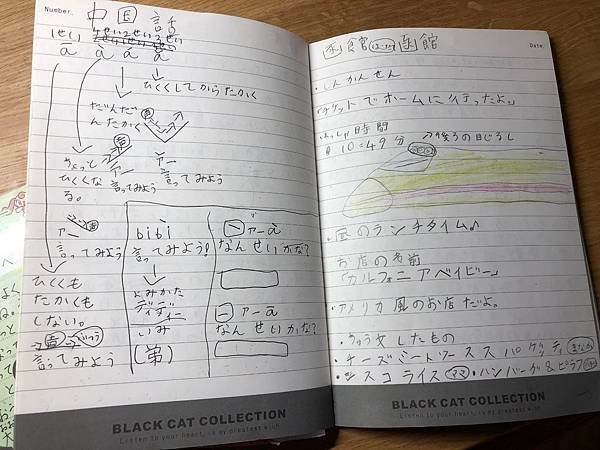 Number.
中国話
1せい 2せい 3せい 4せい
ā á ǎ à
ひくくしてからたかく
だんだんたかく
ちょっとひくくなる。
アー 言ってみよう
アー 言ってみよう
アー
言ってみよう
ひくくも
たかくも
しない。
言ってみよう
言ってみよう!
よみかた
ディディー
いみ
(弟)
アーā
なんせいかな?
アーā
なんせいかな?
BLACK CAT COLLECTION
Listen to your heart, is my greatest wish
Date.
函館
・しんかんせん
「チケットでホームに行ったよ。」
時間
10:49分
後ろの目じるし
・昼のランチタイム♪
お店の名前
「カルフォニアベイビー」
・アメリカ風のお店だよ。
・ちゅう文したもの
・チーズミートソーススパゲッティ
・シスコライス ママ ・ハンバーグ&ピラフ
BLACK CAT COLLECTION
Listen to your heart, is my greatest wish